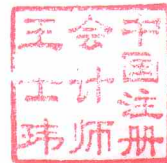 中国注册
会计师
王仕玮